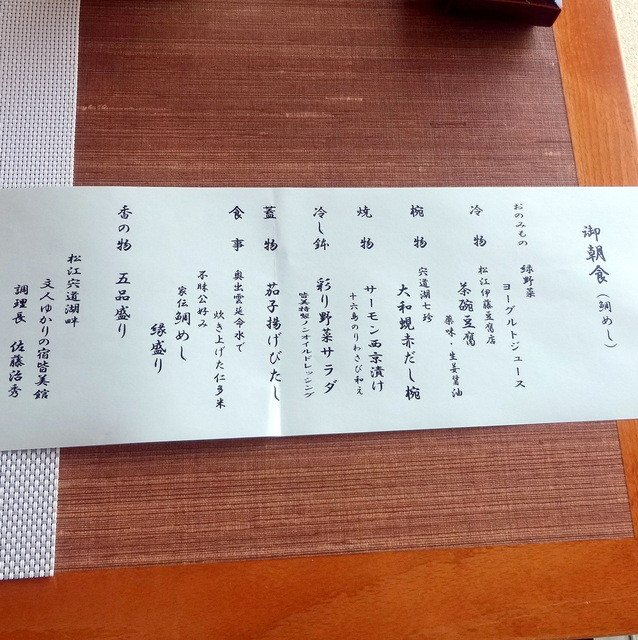 御朝食（鯛めし）
おのみもの 緑野菜
ヨーグルトジュース
冷物 松江伊藤豆腐店
茶碗豆腐
薬味・生姜醤油
椀物 宍道湖七珍
大和蜆赤だし椀
焼物 サーモン西京漬け
十六島のりわさび和え
冷し鉢 彩り野菜サラダ
皆美特製ノンオイルドレッシング
蓋物 茄子揚げびたし
食事 奥出雲延命水で
炊き上げた仁多米
不昧公好み
家伝鯛めし
縁盛り
香の物 五品盛り
松江宍道湖畔
文人ゆかりの宿皆美館
調理長 佐藤治秀